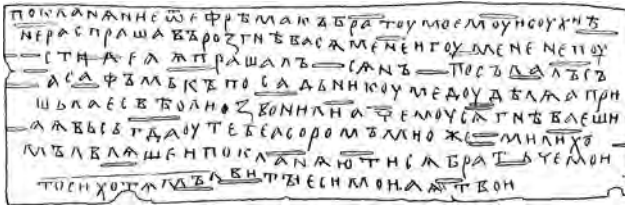 ПОКЛАНѦНИЕѾЕФРѢМАКЪБРАТОУМОЕМОУИСОУХИѢ
НЕРАСПРАШАВЪРОЗГНѢВАСѦМЕНЕИГОУМЕНЕНЕПОУ
СТИЛЕАѦПРАШАЛЪСѦНЪПОСЪЛАЛЪСЪ
АСАФЪМЪКЪПОСАДЬНИКОУМЕДОУДѢЛѦАПРИ
ШЬЛАЕСВѢОЛИОЗВОНИЛИАЧЕМОУСАГНѢВАЕШИ
АѦВЬСЬГДАОУТЕБЕАСОРОМЪМИОЖЕМИЛИХО
МЪЛВЛѦШЕИПОКЛАНѦЮТИСѦБРАТЬЧЕМОИ
ТОСИХОТѦМЪЛВИТЪІЕСИМОИАѦТВОИ